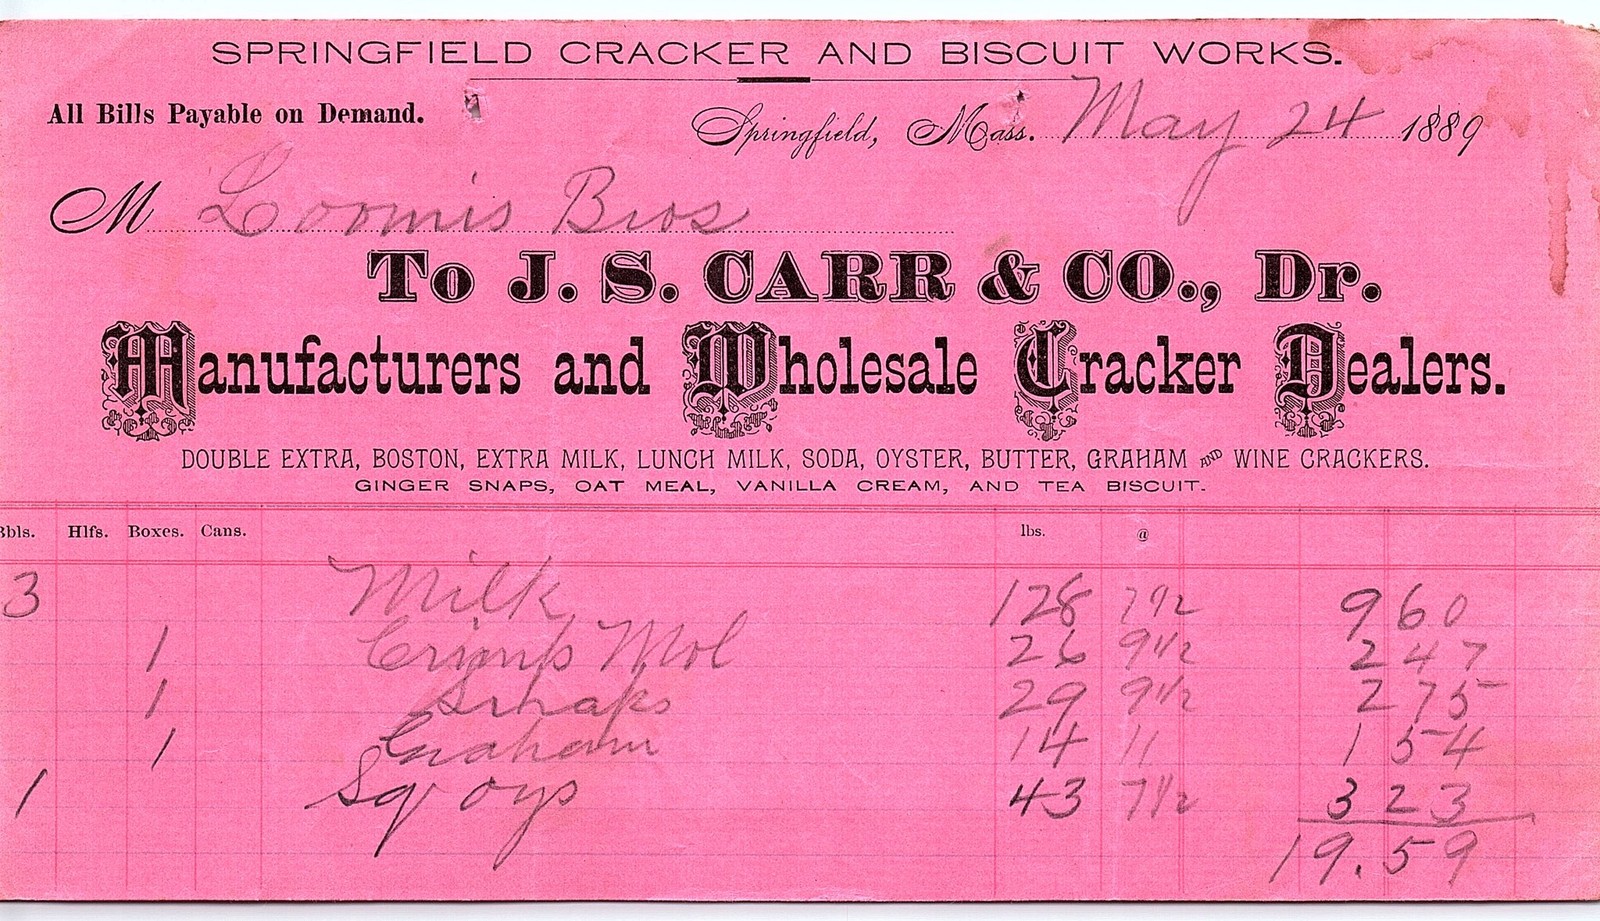 SPRINGFIELD CRACKER AND BISCUIT WORKS.
All Bills Payable on Demand.
Springfield, Mass. May 24 1889
M Loomis Bros
To J. S. CARR & CO., Dr.
Manufacturers and Wholesale Cracker Dealers.
DOUBLE EXTRA, BOSTON, EXTRA MILK, LUNCH MILK, SODA, OYSTER, BUTTER, GRAHAM AND WINE CRACKERS.
GINGER SNAPS, OAT MEAL, VANILLA CREAM, AND TEA BISCUIT.
Bbls. Hlfs. Boxes. Cans. lbs. @
3 Milk 128 7 1/2 9 60
1 Crimp Mol 26 9 1/2 2 47
1 Snaps 29 9 1/2 2 75
1 Graham 14 11 1 54
1 Sq oys 43 7 1/2 3 23
19.59